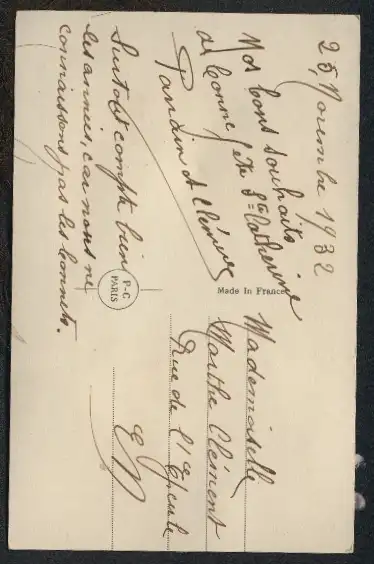 25, Novembre 1932
Nos bons souhaits
de bonne fête Ste Catherine
Parrain et Clémence
Surtout compte bien
les années, car nous ne
connaissons pas les bonnets.
P-C
PARIS
Made In France
Mademoiselle
Marthe Clément
Rue de l'
E V